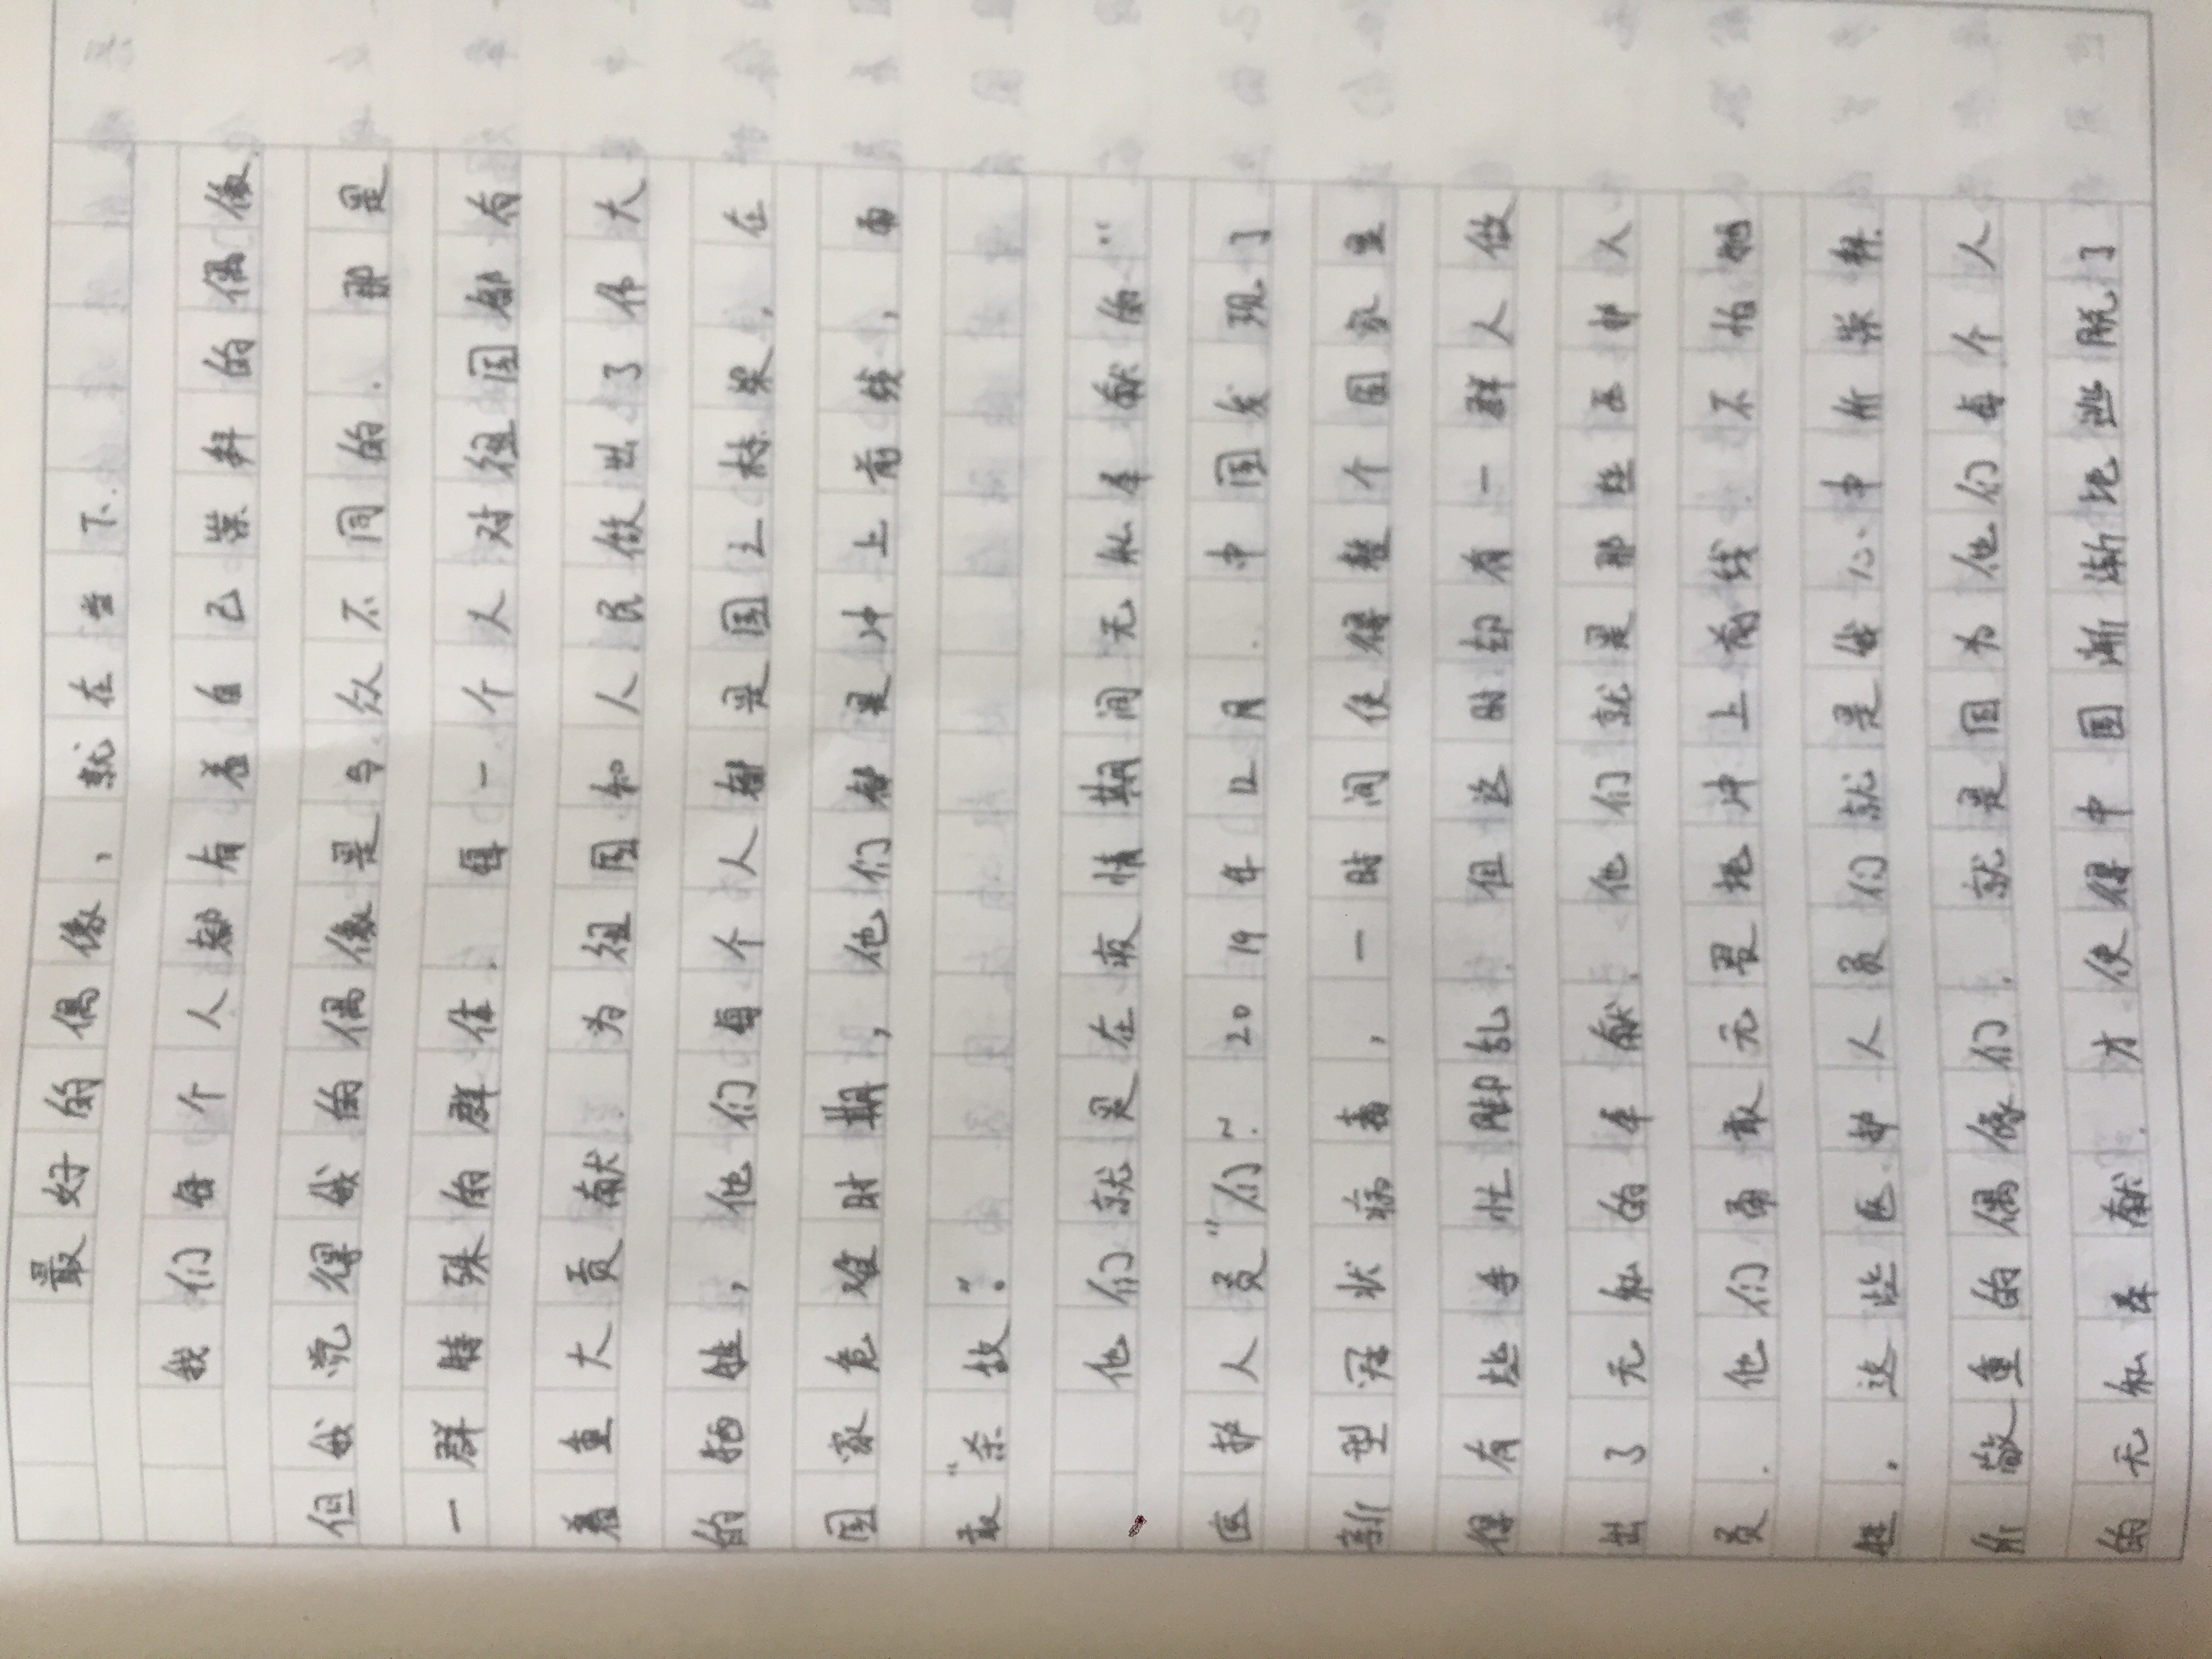 最好的偶像，就在当下.
我们每个人都有着自己崇拜的偶像
但我觉得我的偶像是与众不同的.那是
一群特殊的群体.每一个人对祖国都有
着重大贡献.为祖国和人民做出了伟大
的牺牲，他们每个人都是国之栋梁.在
国家危难时期，他们都是冲上前线，勇
敢“杀敌”。
他们就是在疫情期间无私奉献的“
医护人员”们~2019年12月.中国发现了
新型冠状病毒，一时间使得整个国家显
得有些手忙脚乱.但这时却有一群人做
出了无私的奉献.他们就是那些医护人
员.他们勇敢无畏地冲上前线.不怕牺
牲.这些医护人员们就是我心中所崇拜
所敬重的偶像们.就是因为他们每个人
的无私奉献.才使得中国渐渐地逃脱了